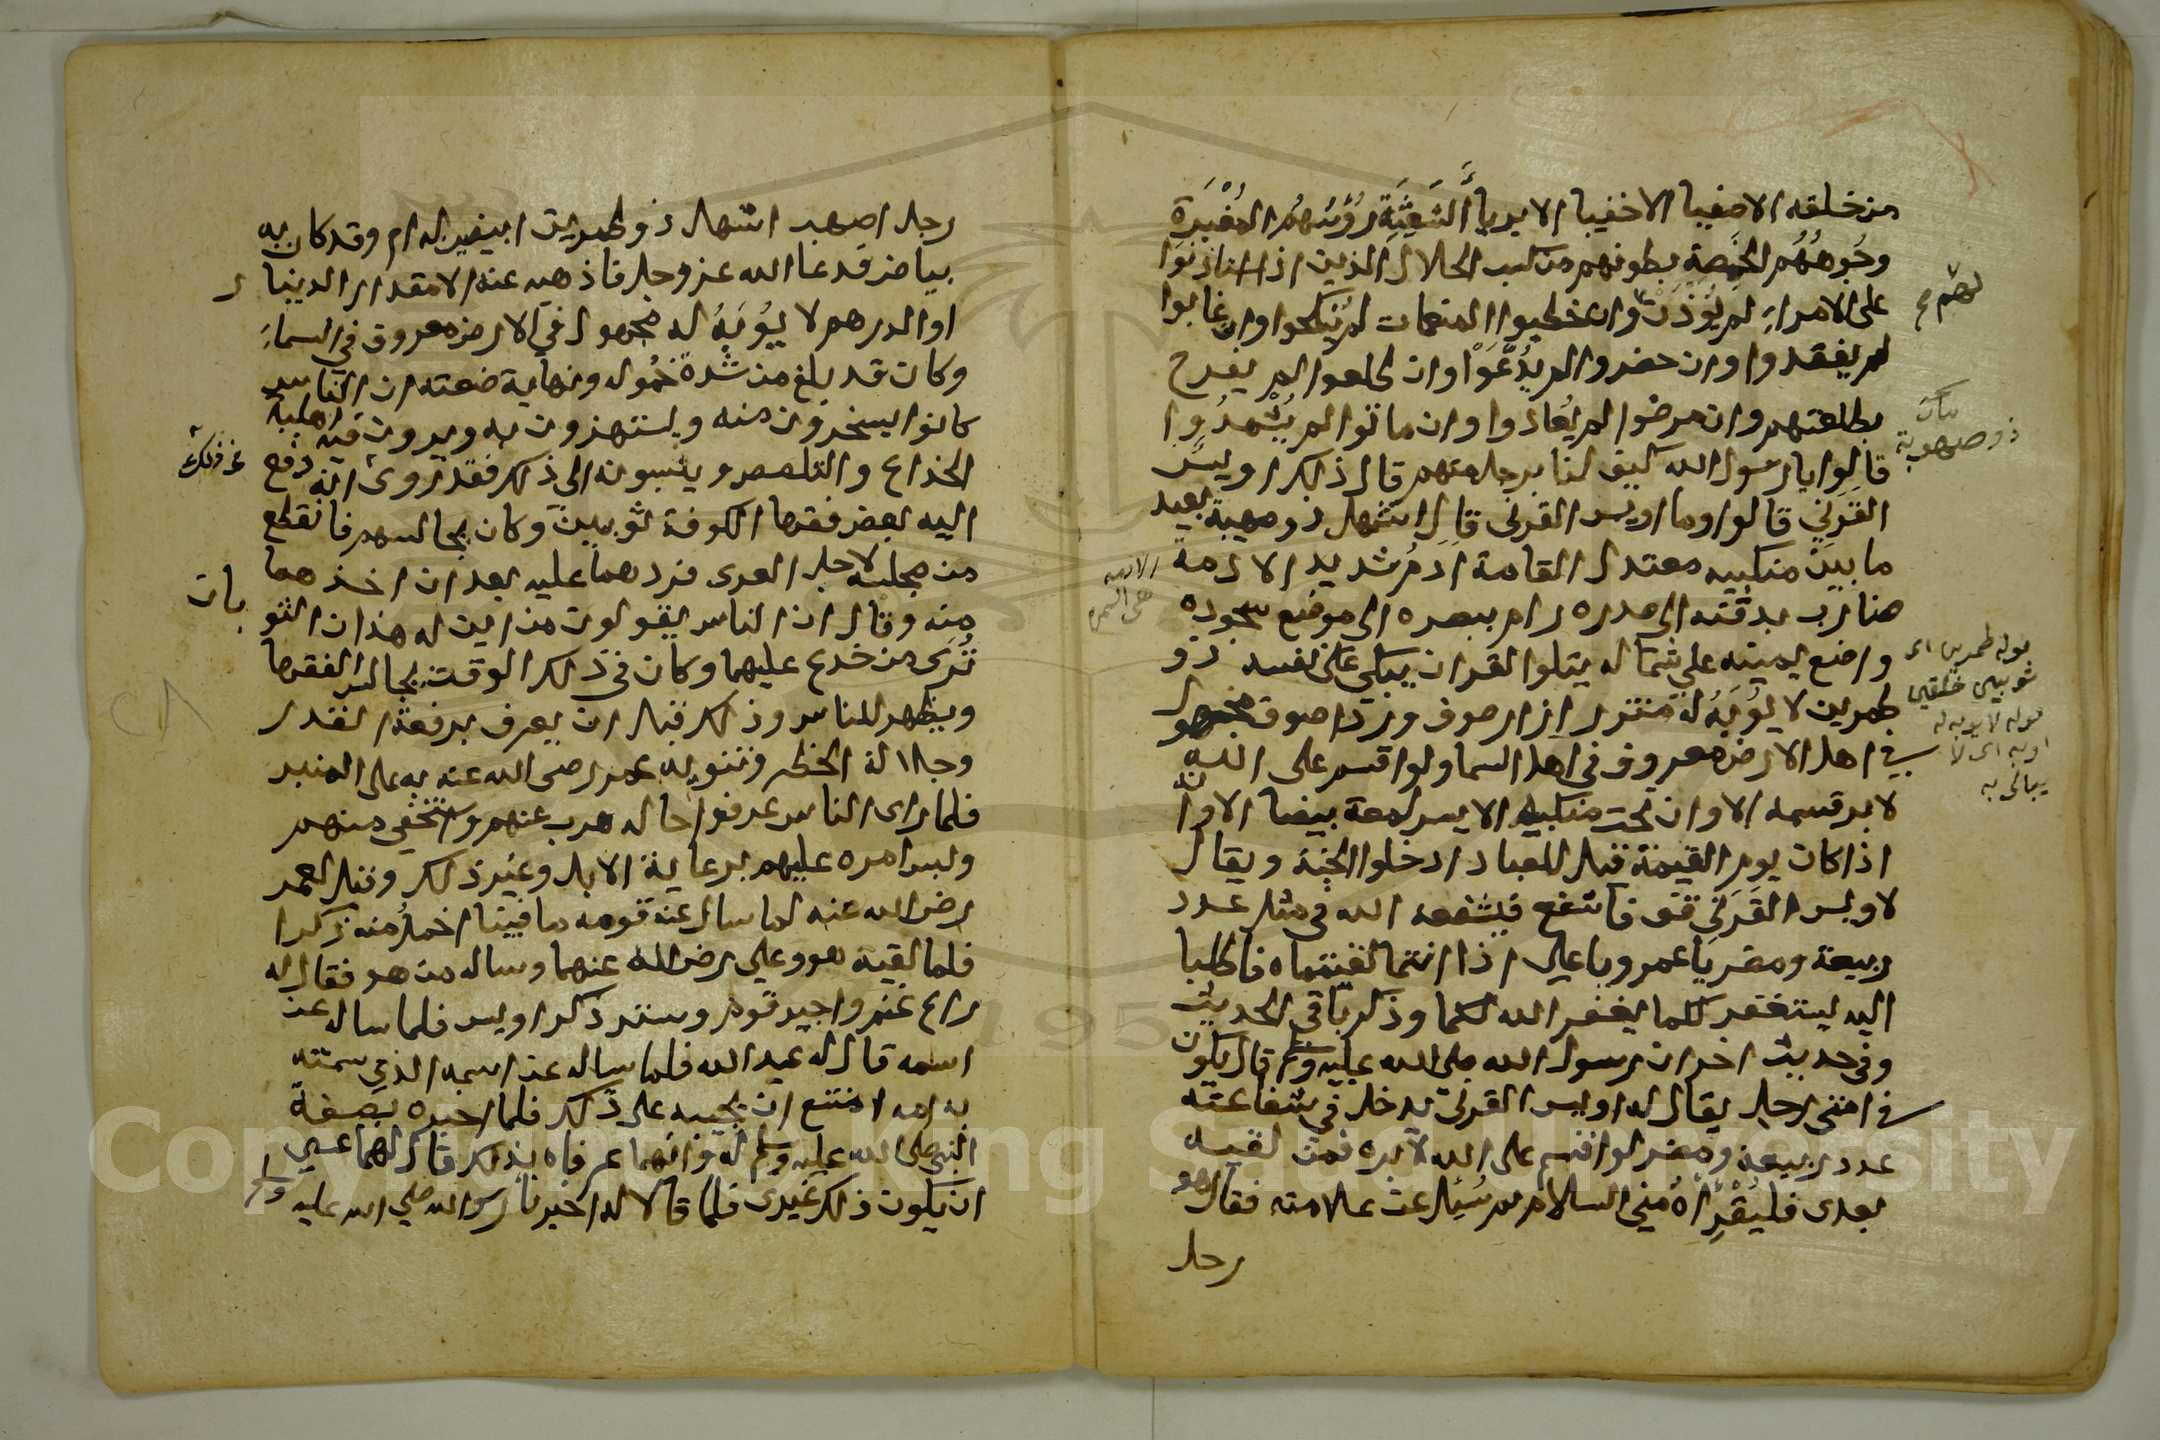 من خلقه الاصفيا الاخفيا الابريا الشَعِثَةِ رُؤُسُهُم المُغْبَرَة
وجُوهُهُم الخَمِصَةِ بطونهم من كسب الحلال الذين اذا استاذنوا
على الامراءِ لم يُؤذَن لهم وان خطبوا المنعمات لم يُنكحوا وان غابوا
لم يفقدوا وان حضروا لم يُدْعَوْا وان طلعوا لم يفرح
بطلعتهم وان مرضوا لم يُعَادوا وان ماتوا لم يُشْهدُوا
قالوا يا رسول الله كيف لنا برجل منهم قال ذلك اويسٌ
القَرَنِي قالوا وما اويس القرنى قال اشهل ذو صهبة بعيد
ما بَيْنَ منكبيه معتدل القامة ادمُ شديد الادمة
ضارب بدقنه الى صدره رام ببصره الى موضع سجوده
واضع يمينه على شماله يتلوا القران يبكى على نفسه ذو
طمرين لا يُؤبَهُ له متزر ازار صوف وردَا صوف مجهول
في اهل الارض معروف في اهل السما ولو اقسم على الله
لابر قسمه الا وان تحت منكبه الايسر لمعة بيضا الا وانه
اذا كان يوم القيمة قيل للعباد ادخلوا الجنة ويقال
لاويس القَرَنِي قف فاشفع فيشفعه الله في مثل عدد
ربيعة ومضر يا عمر ويا علي اذا انتما لقيتماه فاطلبا
اليه يستغفر لكما يغفر الله لكما وذكر باقي الحديث
وفى حديث اخر ان رسول الله صلى الله عليه وسلم قال يكون
في امتى رجل يقال له اويس القرنى يدخل في شفاعته
عدد ربيعة ومضر لو اقسم على الله لابره فمن لقيه
بعدى فليُقْرِاهُ مني السلام ثم سُئِل عن علامته فقال هو
رجل
لهم صح
ذو صهوبة
الادمة
هى السمره
قوله طمرين اى
ثوبين خلقين
قوله لا يوبه له
اوبه اى لا
يبالى به
رجل اصهب اشهل ذو طمرين ابيضين له ام وقد كان به
بياض فدعا الله عز وجل فاذهبه عنه الا مقدار الدينار
او الدرهم لا يُؤبَهُ له مجهول في الارض معروف في السماءِ
وكان قد بلغ من شدة خُموله ونهاية ضعته ان الناس
كانوا يسخرون منه ويستهزون به ويرون فيه اهلية
الخداع والتلصص وينسبونه الى ذلك فقد رُوى انه دفع
اليه بعض فقها الكوفة ثوبين وكان يجالسهم فانقطع
من مجلسه لاجل العرى فردهما عليه بعد ان اخذهما
منه وقال ان الناس يقولون من اين له هذان الثوبان
تُرَى من خدع عليهما وكان في ذلك الوقت يجالس الفقها
ويظهر للناس وذلك قبل ان يعرف برفعة القدر
وجلالة الخطر وتنويه عمر رضى الله عنه به على المنبر
فلما راى الناس عرفوا حاله هرب عنهم واستخفى منهم
ولبس امره عليهم برعاية الابل وغير ذلك وقيل لعمر
رضى الله عنه لما سال عنه قومه ما فينا اخمل منه ذكرا
فلما لقيه هو وعلي رضى الله عنهما وساله من هو فقال له
راع غنم واجير قوم وستر ذكر اويس فلما ساله عن
اسمه قال له عبد الله فلما ساله عن اسمه الذي سمته
به امه امتنع ان يجيبه على ذلك فلما اخبره بصفة
النبى صلى الله عليه وسلم له وانهما عرفاه بذلك قال لهما عسى
ان يكون ذلك غيرى فلما قالا له اخبرنا رسول الله صلى الله عليه وسلم